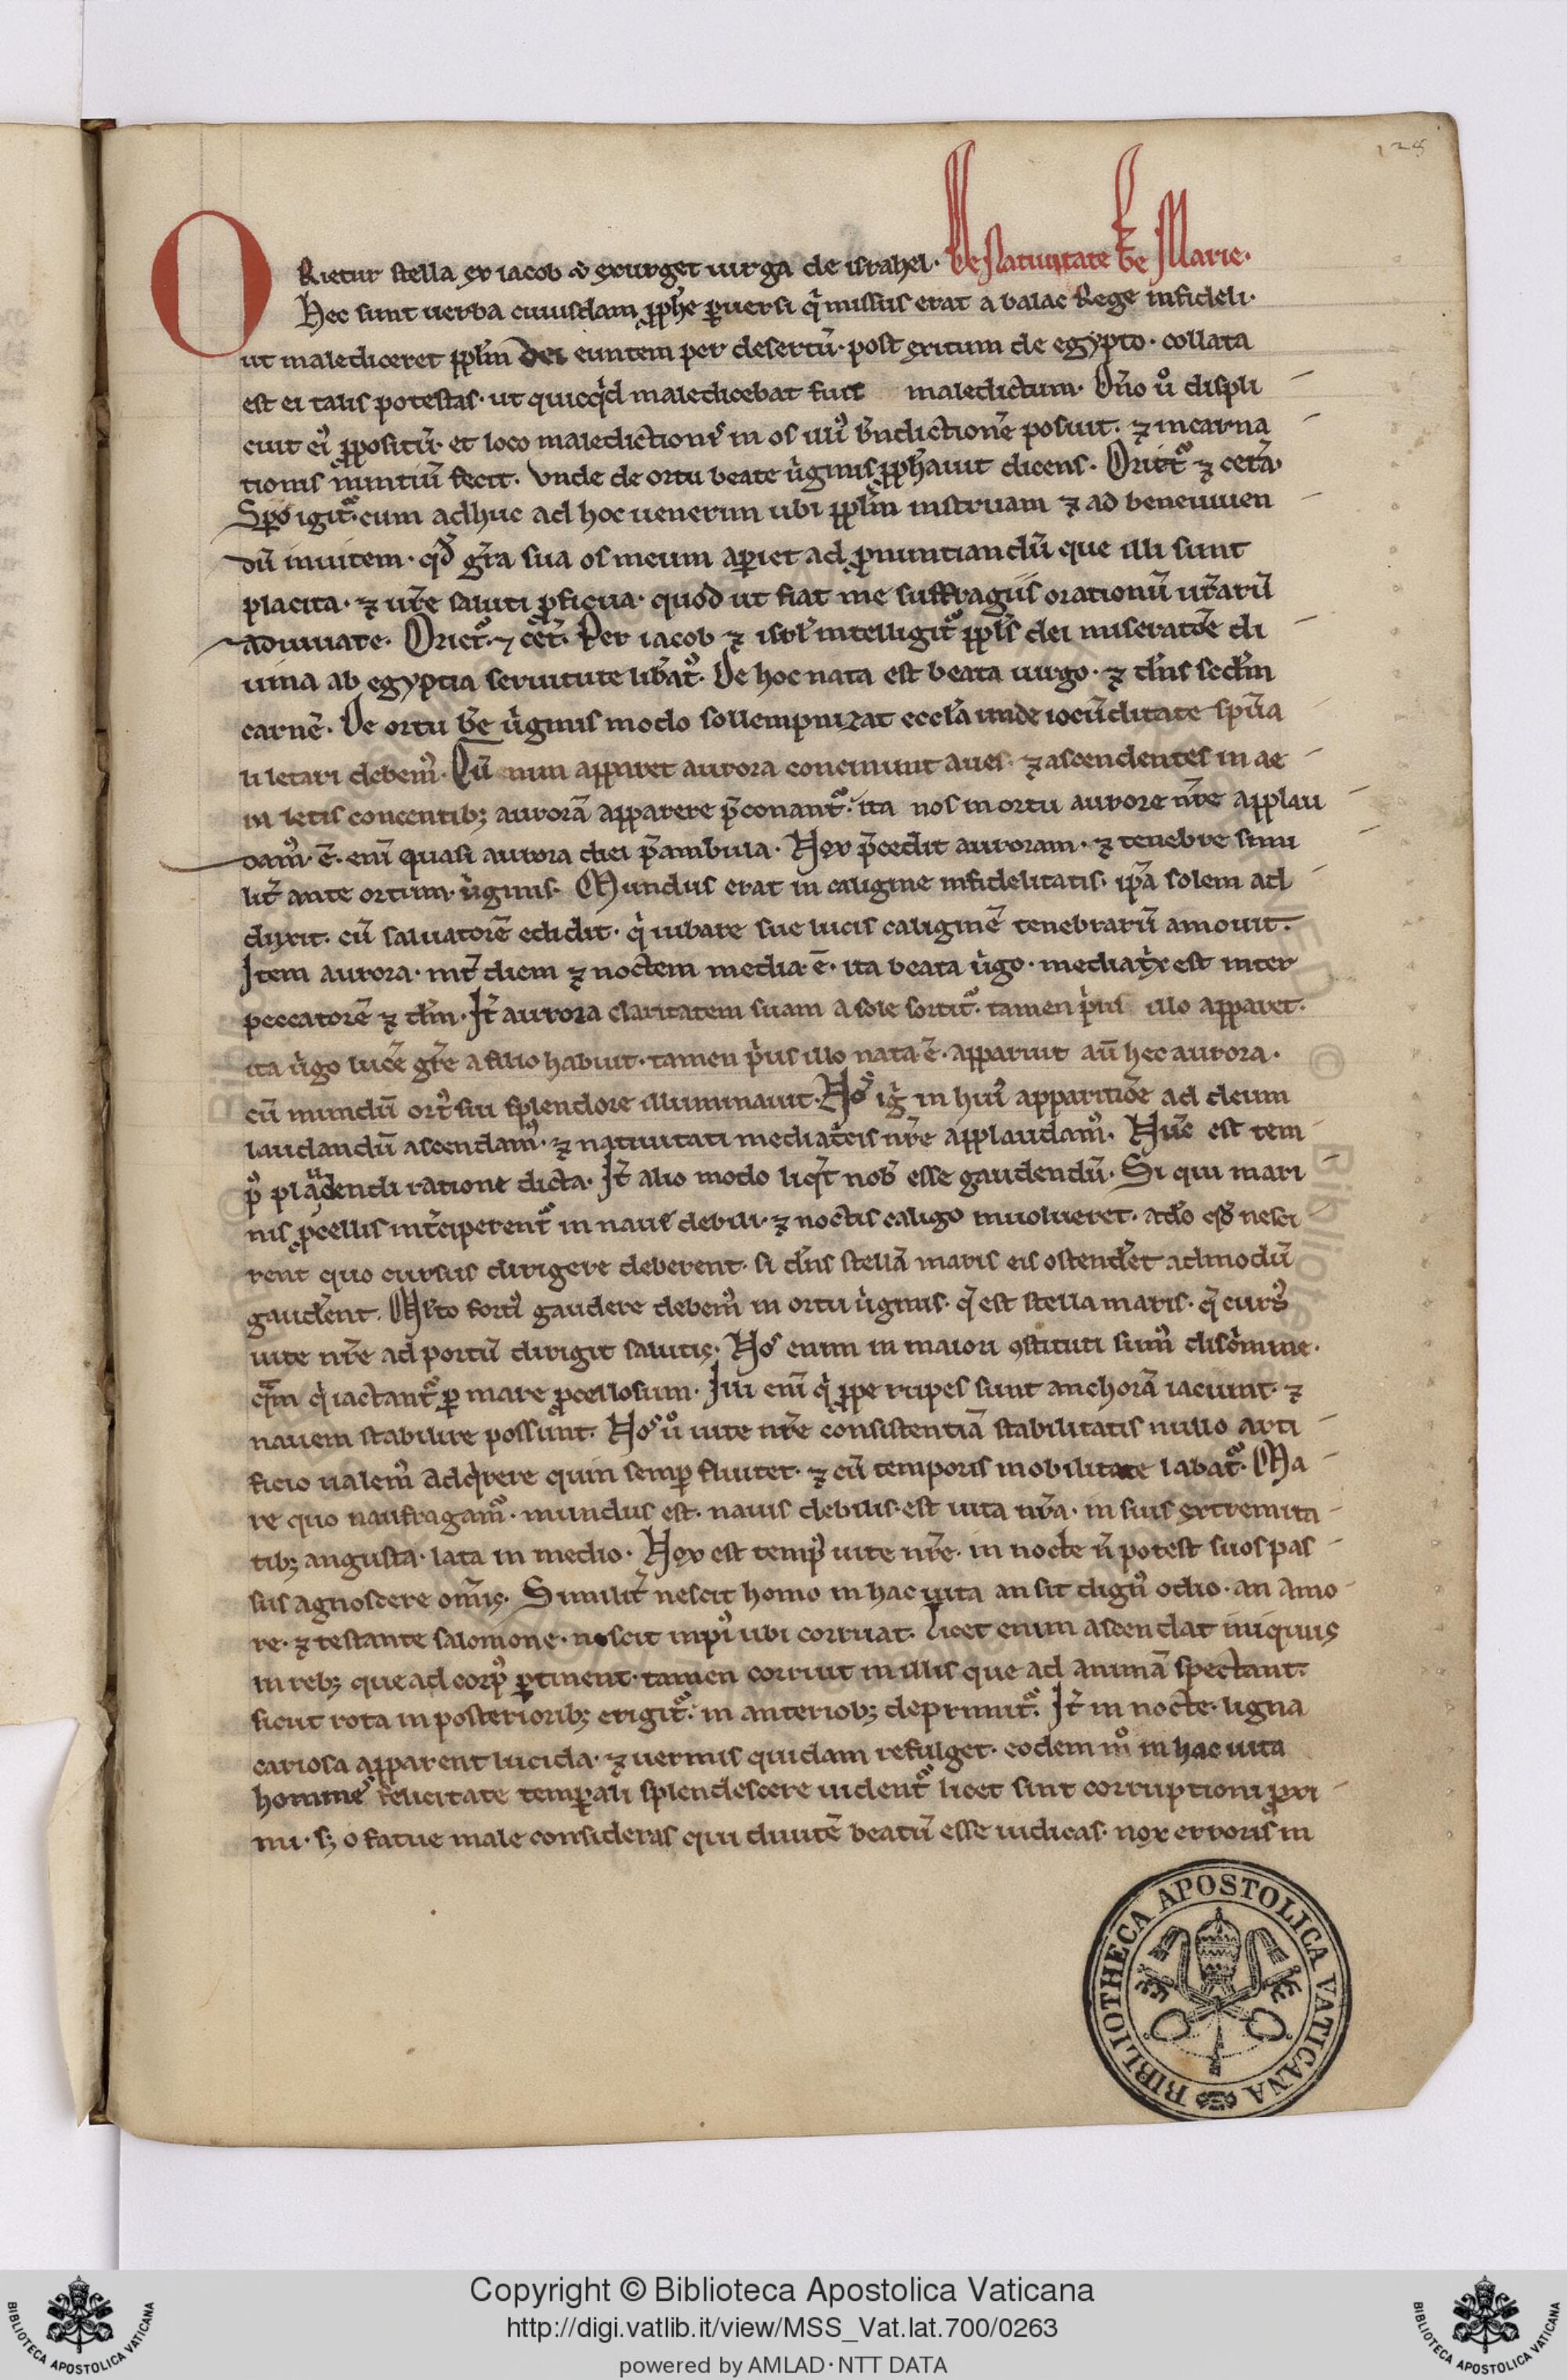 128
ORietur stella ex iacob & exurget uirga de israhel. De Natiuitate be Marie.
Hec sunt uerba cuiusdam pphe puersi q missus erat a balac Rege infideli.
ut malediceret pplm dei euntem per desertū. post exitum de egypto. collata
est ei talis potestas. ut quicqd maledicebat fuit maledictum. Dno u displi
cuit ei ppositū. et loco maledictionis in os illi bndictionē posuit. ⁊ incarna
tionis nuntiū fecit. Vnde de ortu beate uginis pphauit dicens. Oriet ⁊ cetā.
Spo igit cum adhuc ad hoc uenerim ubi pplm instruam ⁊ ad beneuiuen
dū inuitem. qd gra sua os meum apiet ad pnuntiandū que illi sunt
placita. ⁊ ure saluti pficua. quod ut fiat me suffragiis orationū urarū
adiuuate. Oriet. ⁊ cet. Per iacob ⁊ isrl intelligit ppls dei miseratōe di
uina ab egyptia seruitute libat. De hoc nata est beata uirgo. ⁊ dns scdm
carnē. De ortu be uginis modo sollempnizat eccla unde iocūditate spūa
li letari debem. Cū enim apparet aurora concinunt aues. ⁊ ascendentes in ae
ra letis concentib; aurorā apparere pconant. ita nos in ortu aurore nre applau
dam. ē. eni quasi aurora diei pambula. Nox pcedit auroram. ⁊ tenebre simi
lit ante ortum uginis. Mundus erat in caligine infidelitatis. ipa solem ad
duxit. cū saluatorē edidit. q iubare sue lucis caliginē tenebrarū amouit.
Item aurora. int diem ⁊ noctem media ē. ita beata ugo. mediatx est inter
peccatorē ⁊ dm. It aurora claritatem suam a sole sortit. tamen pus illo apparet.
ita ugo lucē gre a filio habuit. tamen pus illo nata ē. apparuit aū hec aurora.
cū mundū ort sui splendore illuminauit. Nos ig in hui apparitiōe ad deum
laudandū ascendam. ⁊ natiuitati mediatcis nre applaudam. Huc est tem
p plaudendi ratione dicta. It alio modo liqt nob esse gaudendū. Si qui mari
nis pcellis intciperent in naui debili. ⁊ noctis caligo inuolueret. ado qd nesci
rent quo cursus dirigere deberent. si dns stellā maris eis ostendet admodū
gaudent. Mlto forti gaudere debem in ortu uginis. q est stella maris. q curs
uite nre ad portū dirigit salutis. Nos enim in maiori ꝯstituti sum discmine.
qm q iactant p mare pcellosum. Illi eni q ppe rupes sunt anchorā iaciunt ⁊
nauem stabilire possunt. Nos u uite nre consistentiā stabilitatis nullo arti
ficio ualem adqrere quin semp fluitet. ⁊ cū temporis mobilitate labat. Ma
re quo naufragam. mundus est. nauis debilis. est uita nra. in suis extremita
tib; angusta. lata in medio. Nox est temp uite nre. in nocte n potest suos pas
sus agnoscere omis. Similit nescit homo in hac uita an sit dign odio. an amo
re. ⁊ testante salomone. nescit inpi ubi corruat. Licet enim ascendat iniquus
in reb; que ad corp ptinent. tamen corruit in illis que ad animā spectant.
sicut rota in posteriorib; erigit. in anteriob; deprimit. It in nocte. ligna
cariosa apparent lucida. ⁊ uermis quidam refulget. eodem m in hac uita
homines felicitate tempali splendescere uident licet sint corruptioni pxi
mi. s; o fatue male consideras qui diuitē beatū esse iudicas. nox erroris in
BIBLIOTHECA APOSTOLICA VATICANA
Copyright © Biblioteca Apostolica Vaticana
http://digi.vatlib.it/view/MSS_Vat.lat.700/0263
powered by AMLAD·NTT DATA
BIBLIOTECA APOSTOLICA VATICANA
BIBLIOTECA APOSTOLICA VATICANA